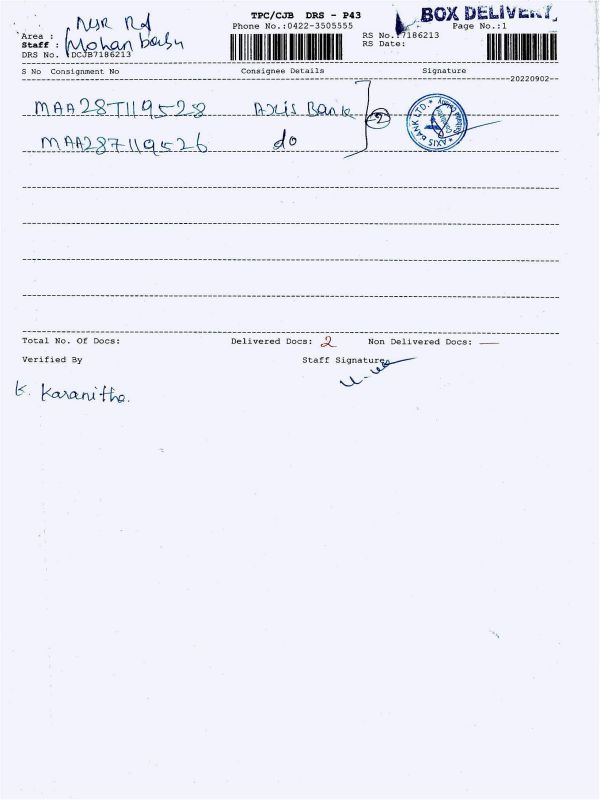 TPC/CJB DRS - P43
BOX DELIVERY
Phone No.:0422-3505555
Page No.:1
Area : NSR Rd
Staff : Mohan babu
DRS No. DCJB7186213
RS No.:7186213
RS Date:
S No Consignment No Consignee Details Signature
20220902
MAA287119528 Axis Bank
2
AXIS BANK LTD.
MAA287119526 do
Total No. Of Docs: Delivered Docs: 2 Non Delivered Docs: —
Verified By Staff Signature
K. Karanitha.